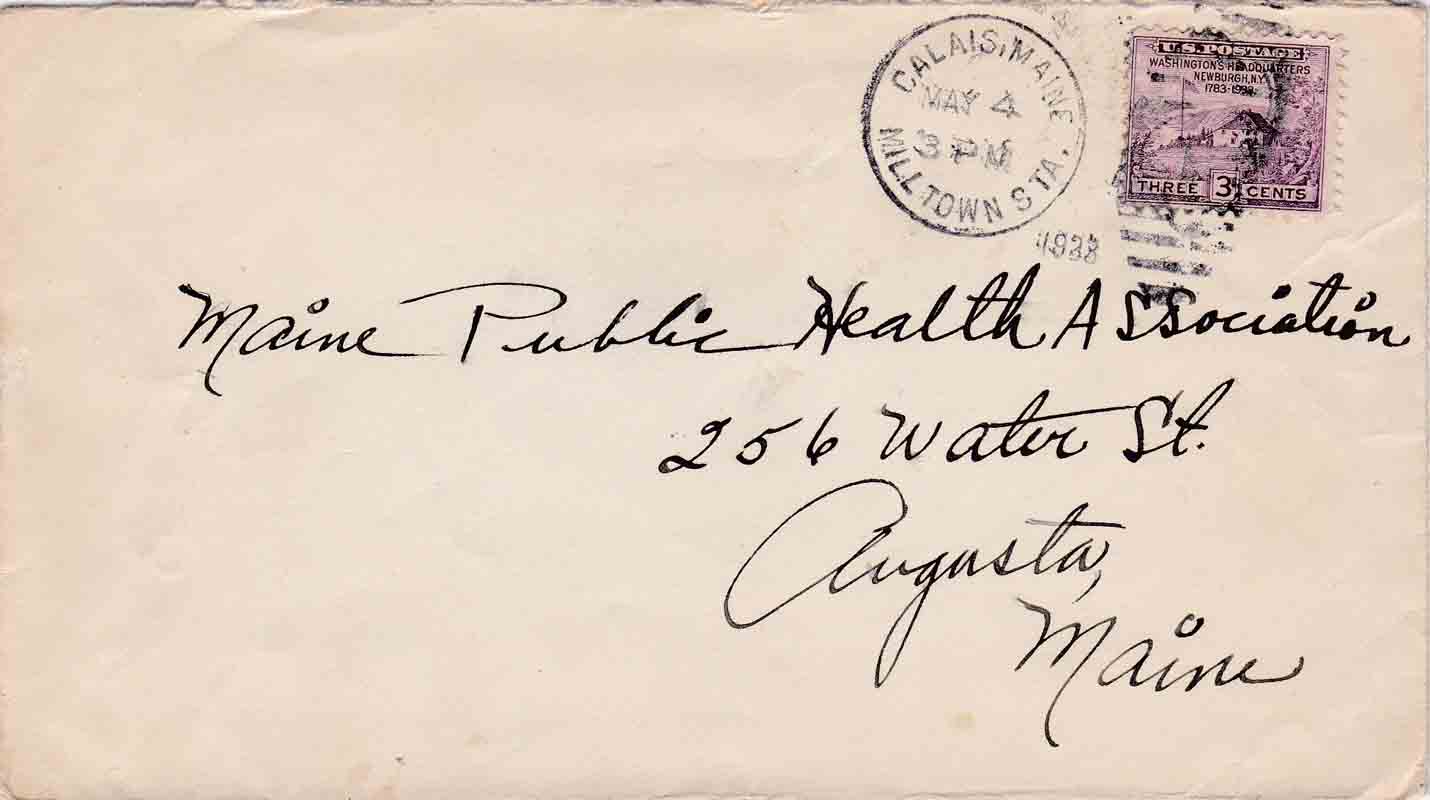 CALAIS, MAINE
MAY 4
3 PM
MILLTOWN STA.
U.S. POSTAGE
WASHINGTON'S HEADQUARTERS
NEWBURGH, N.Y.
1783-1933
THREE 3 CENTS
Maine Public Health Association
256 Water St.
Augusta,
Maine